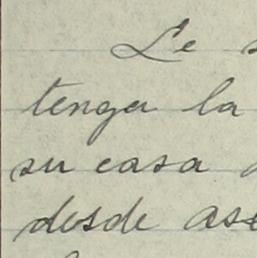 Le
tenga la
su casa
desde